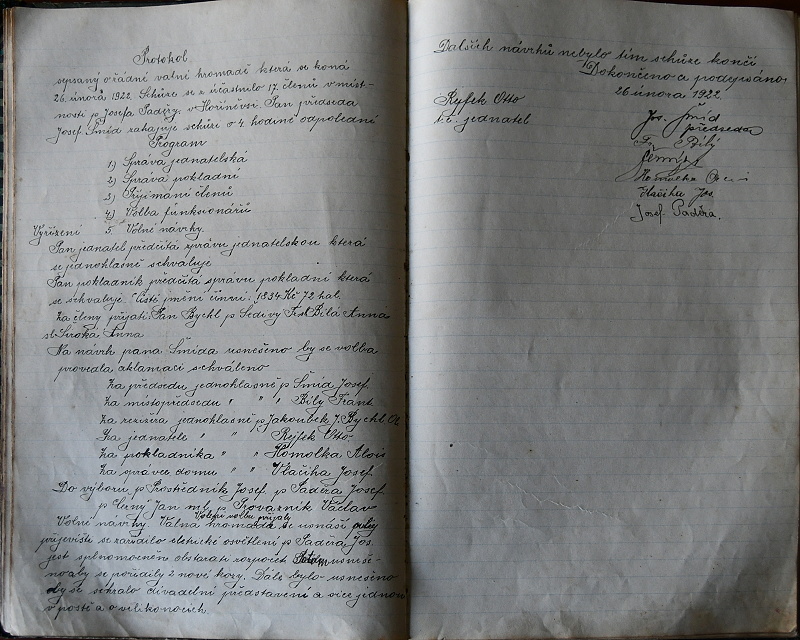 Protokol
sepsaný o řádní valní hromadě která se koná
26. února 1922. Schůze se z účastnilo 17. členů v míst-
nosti p. Josefa Paděry, v Hoříněvsi. Pan předseda
Josef Šmíd zahajuje schůzi o 4. hodině odpolední
Program
1.) Správa jednatelská
2.) Správa pokladní
3.) Přijímání členů
4.) Volba funkcionářů
Vyřízení 5. Volné návrhy.
Pan jednatel předčítá zprávu jednatelskou která
se jednohlasně schvaluje
Pan pokladník předčítá správu pokladní která
se schvaluje. Čisté jmění činní: 1834 Kč 72 hal.
Za členy přijati: Pan Bychl p Šedivý Frt. Bílá Anna
sl. Široká Anna
Na návrh pana Šmída usnešeno by se volba
provedla aklamací schváleno
Za předsedu jednohlasně p Šmíd Josef
Za místopředsedu " " " Bílý Frant
Za režiséra jednohlasně p Jakoubek J. Bychl Ot
Za jednatele " " Rejfek Otto
Za pokladníka " " Homolka Alois
Za správce domu " " Vlačiha Josef
Do výboru p Prostředník Josef p Paděra Josef
p Černý Jan ml. p Provazník Václav
Volení volbu přijali
Volní návrhy. Valná hromada se usnáší aby
při jevišti se zařídilo eletrické osvětlení p Paděra Jos.
jest splnomocněn obstarati rozpočet usneše-
no aby se pořídily 2 nové kozy. Dále bylo usnešeno
by se sehrálo divadelní představení a více jednou
v postě a o velikonocích.
Dalších návrhů nebylo tím schůze končí
Dokončeno a podepsáno
26 února 1922.
Ryfek Otto
t.č. jednatel
Jos. Šmíd
předseda
Fr. Bílý
Černý
Homolka
Vlačiha Jos.
Josef Paděra.